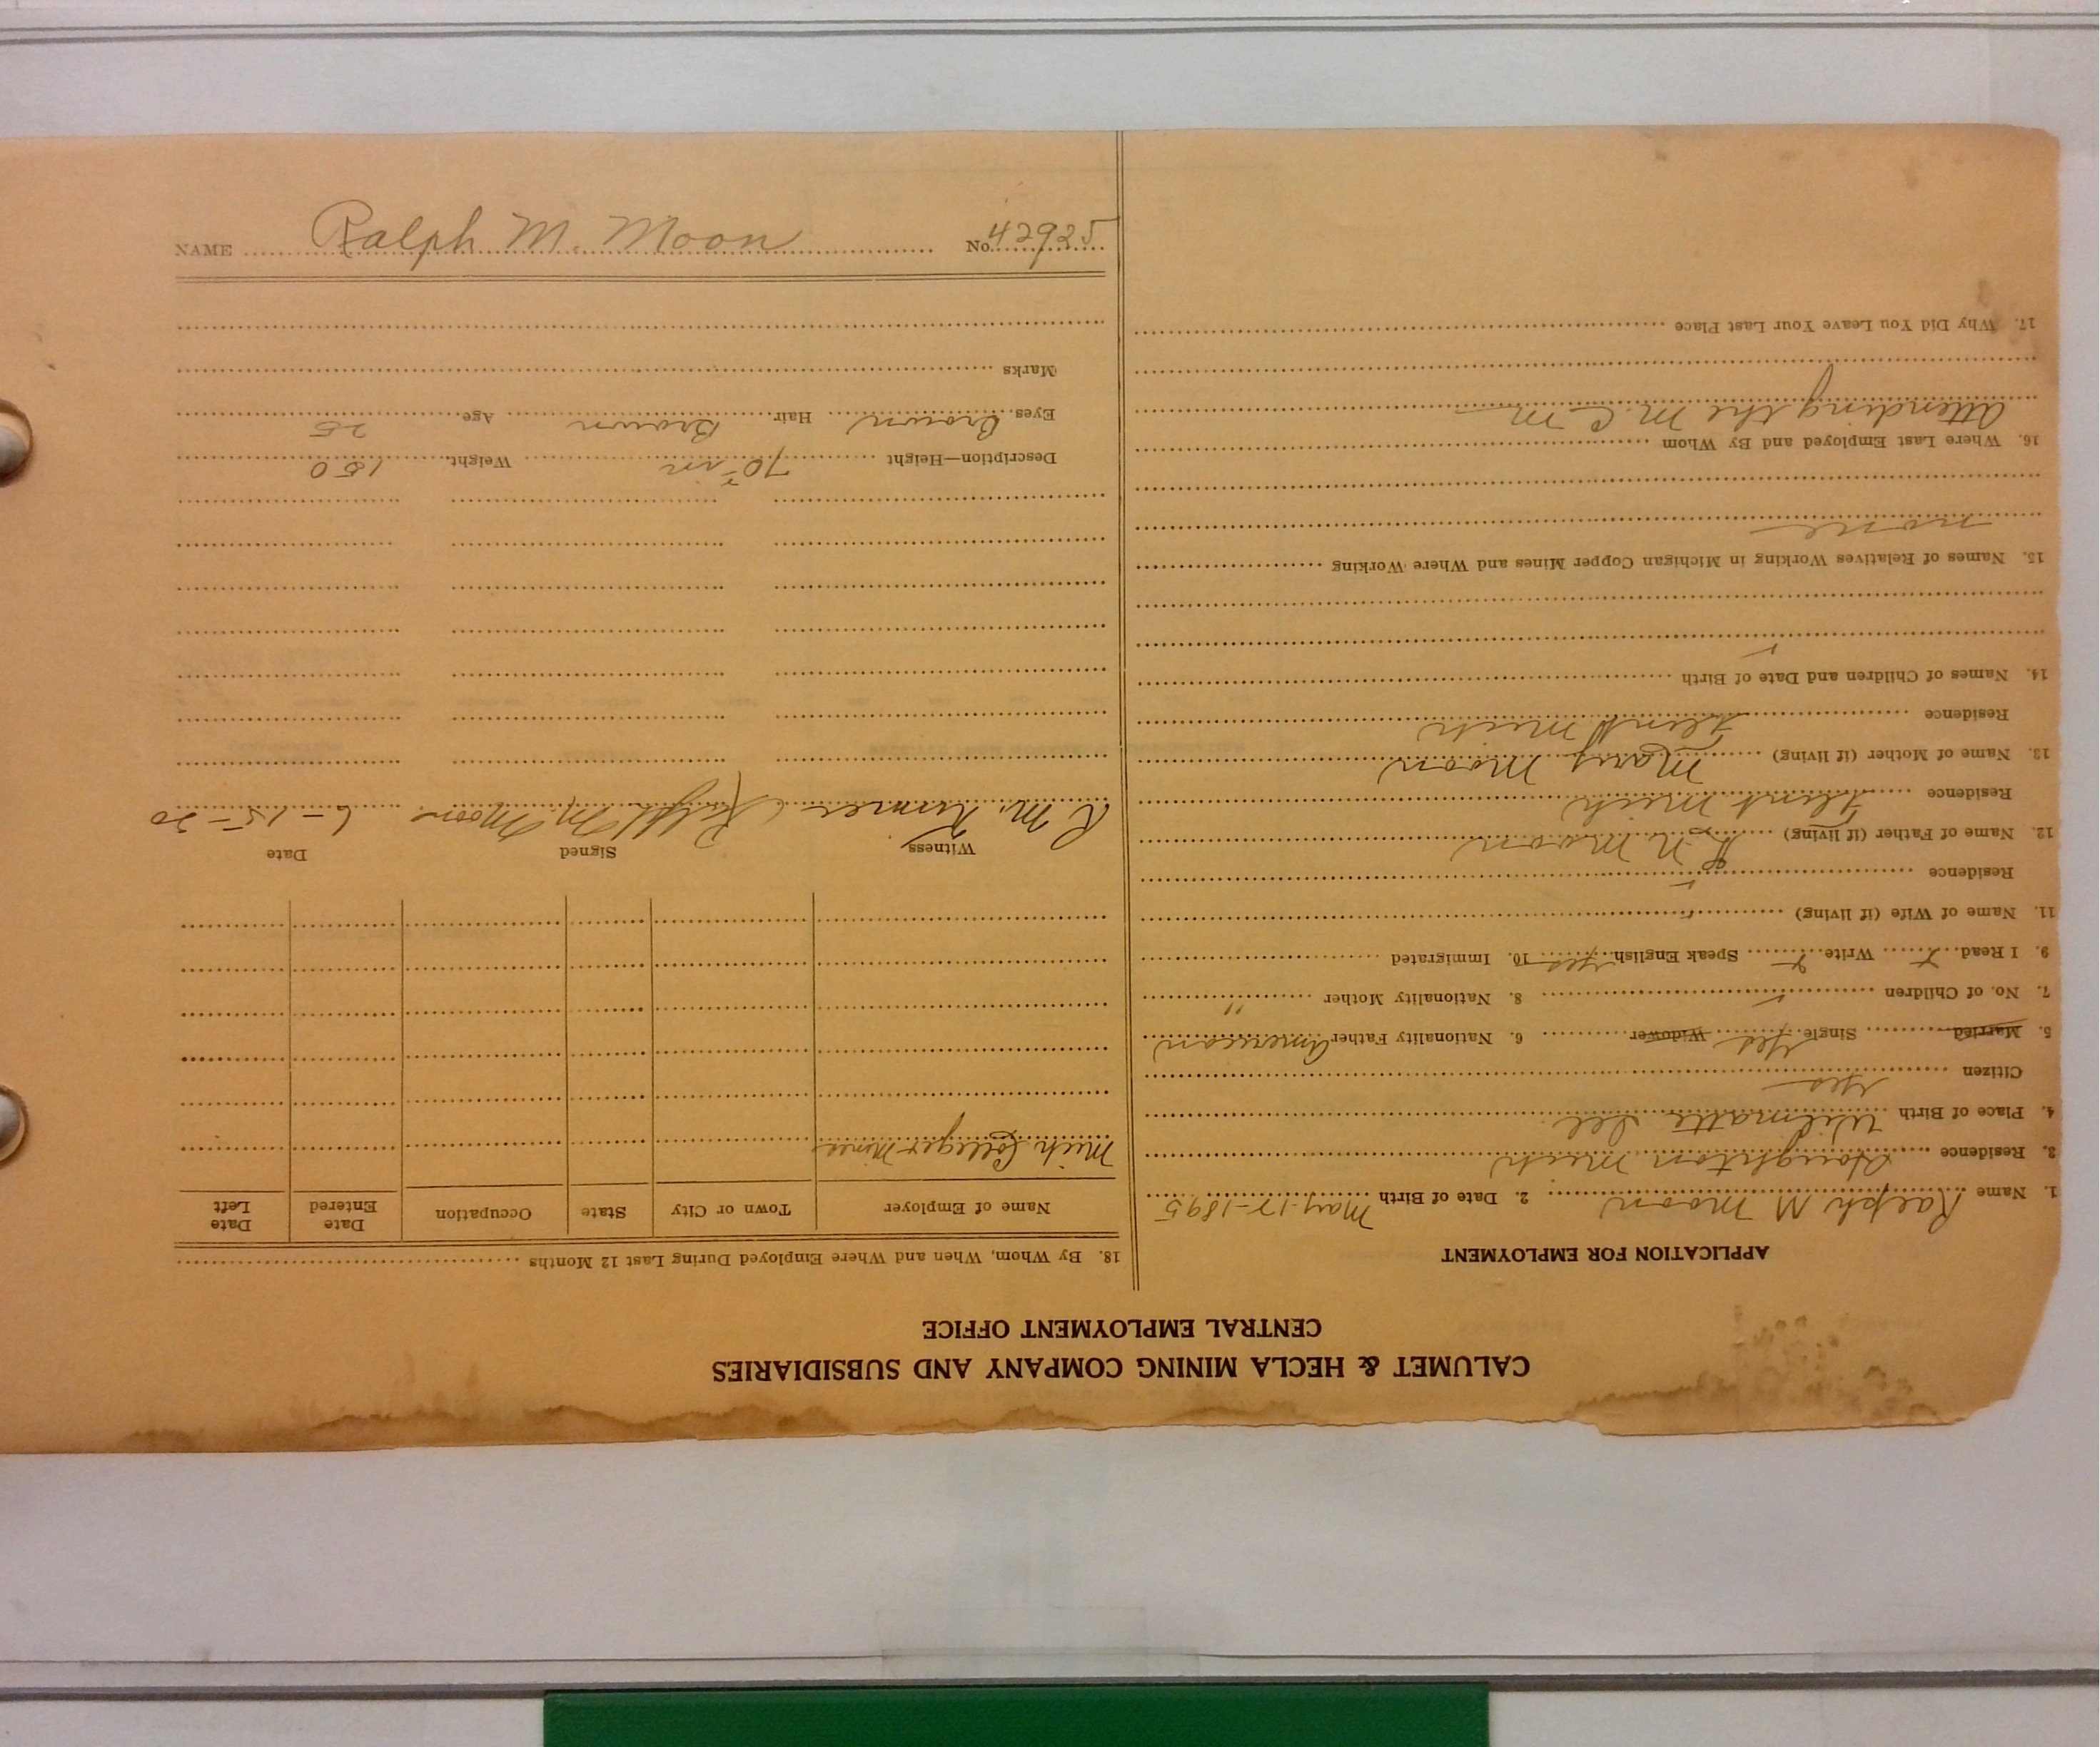 CALUMET & HECLA MINING COMPANY AND SUBSIDIARIES
CENTRAL EMPLOYMENT OFFICE
APPLICATION FOR EMPLOYMENT
1. Name Ralph M Moon 2. Date of Birth May-17-1895
3. Residence Houghton Mich
4. Place of Birth Wilmatte Ill
Citizen Yes
5. Married Single Yes Widower 6. Nationality Father American
7. No. of Children 8. Nationality Mother "
9. I Read Write Speak English yes 10. Immigrated
11. Name of Wife (if living)
Residence
12. Name of Father (if living) N Moon
Residence Flint Mich
13. Name of Mother (if living) Mary Moon
Residence Flint Mich
14. Names of Children and Date of Birth
15. Names of Relatives Working in Michigan Copper Mines and Where Working
none
16. Where Last Employed and By Whom
Attending the M. C M
17. Why Did You Leave Your Last Place
18. By Whom, When and Where Employed During Last 12 Months
Name of Employer Town or City State Occupation Date Entered Date Left
Mich College Mines
Witness Signed Date
R M. Ralph M. Moon 6-15-20
Description—Height 70 in Weight 150
Eyes Brown Hair Brown Age 25
Marks
NAME Ralph M. Moon No. 42925